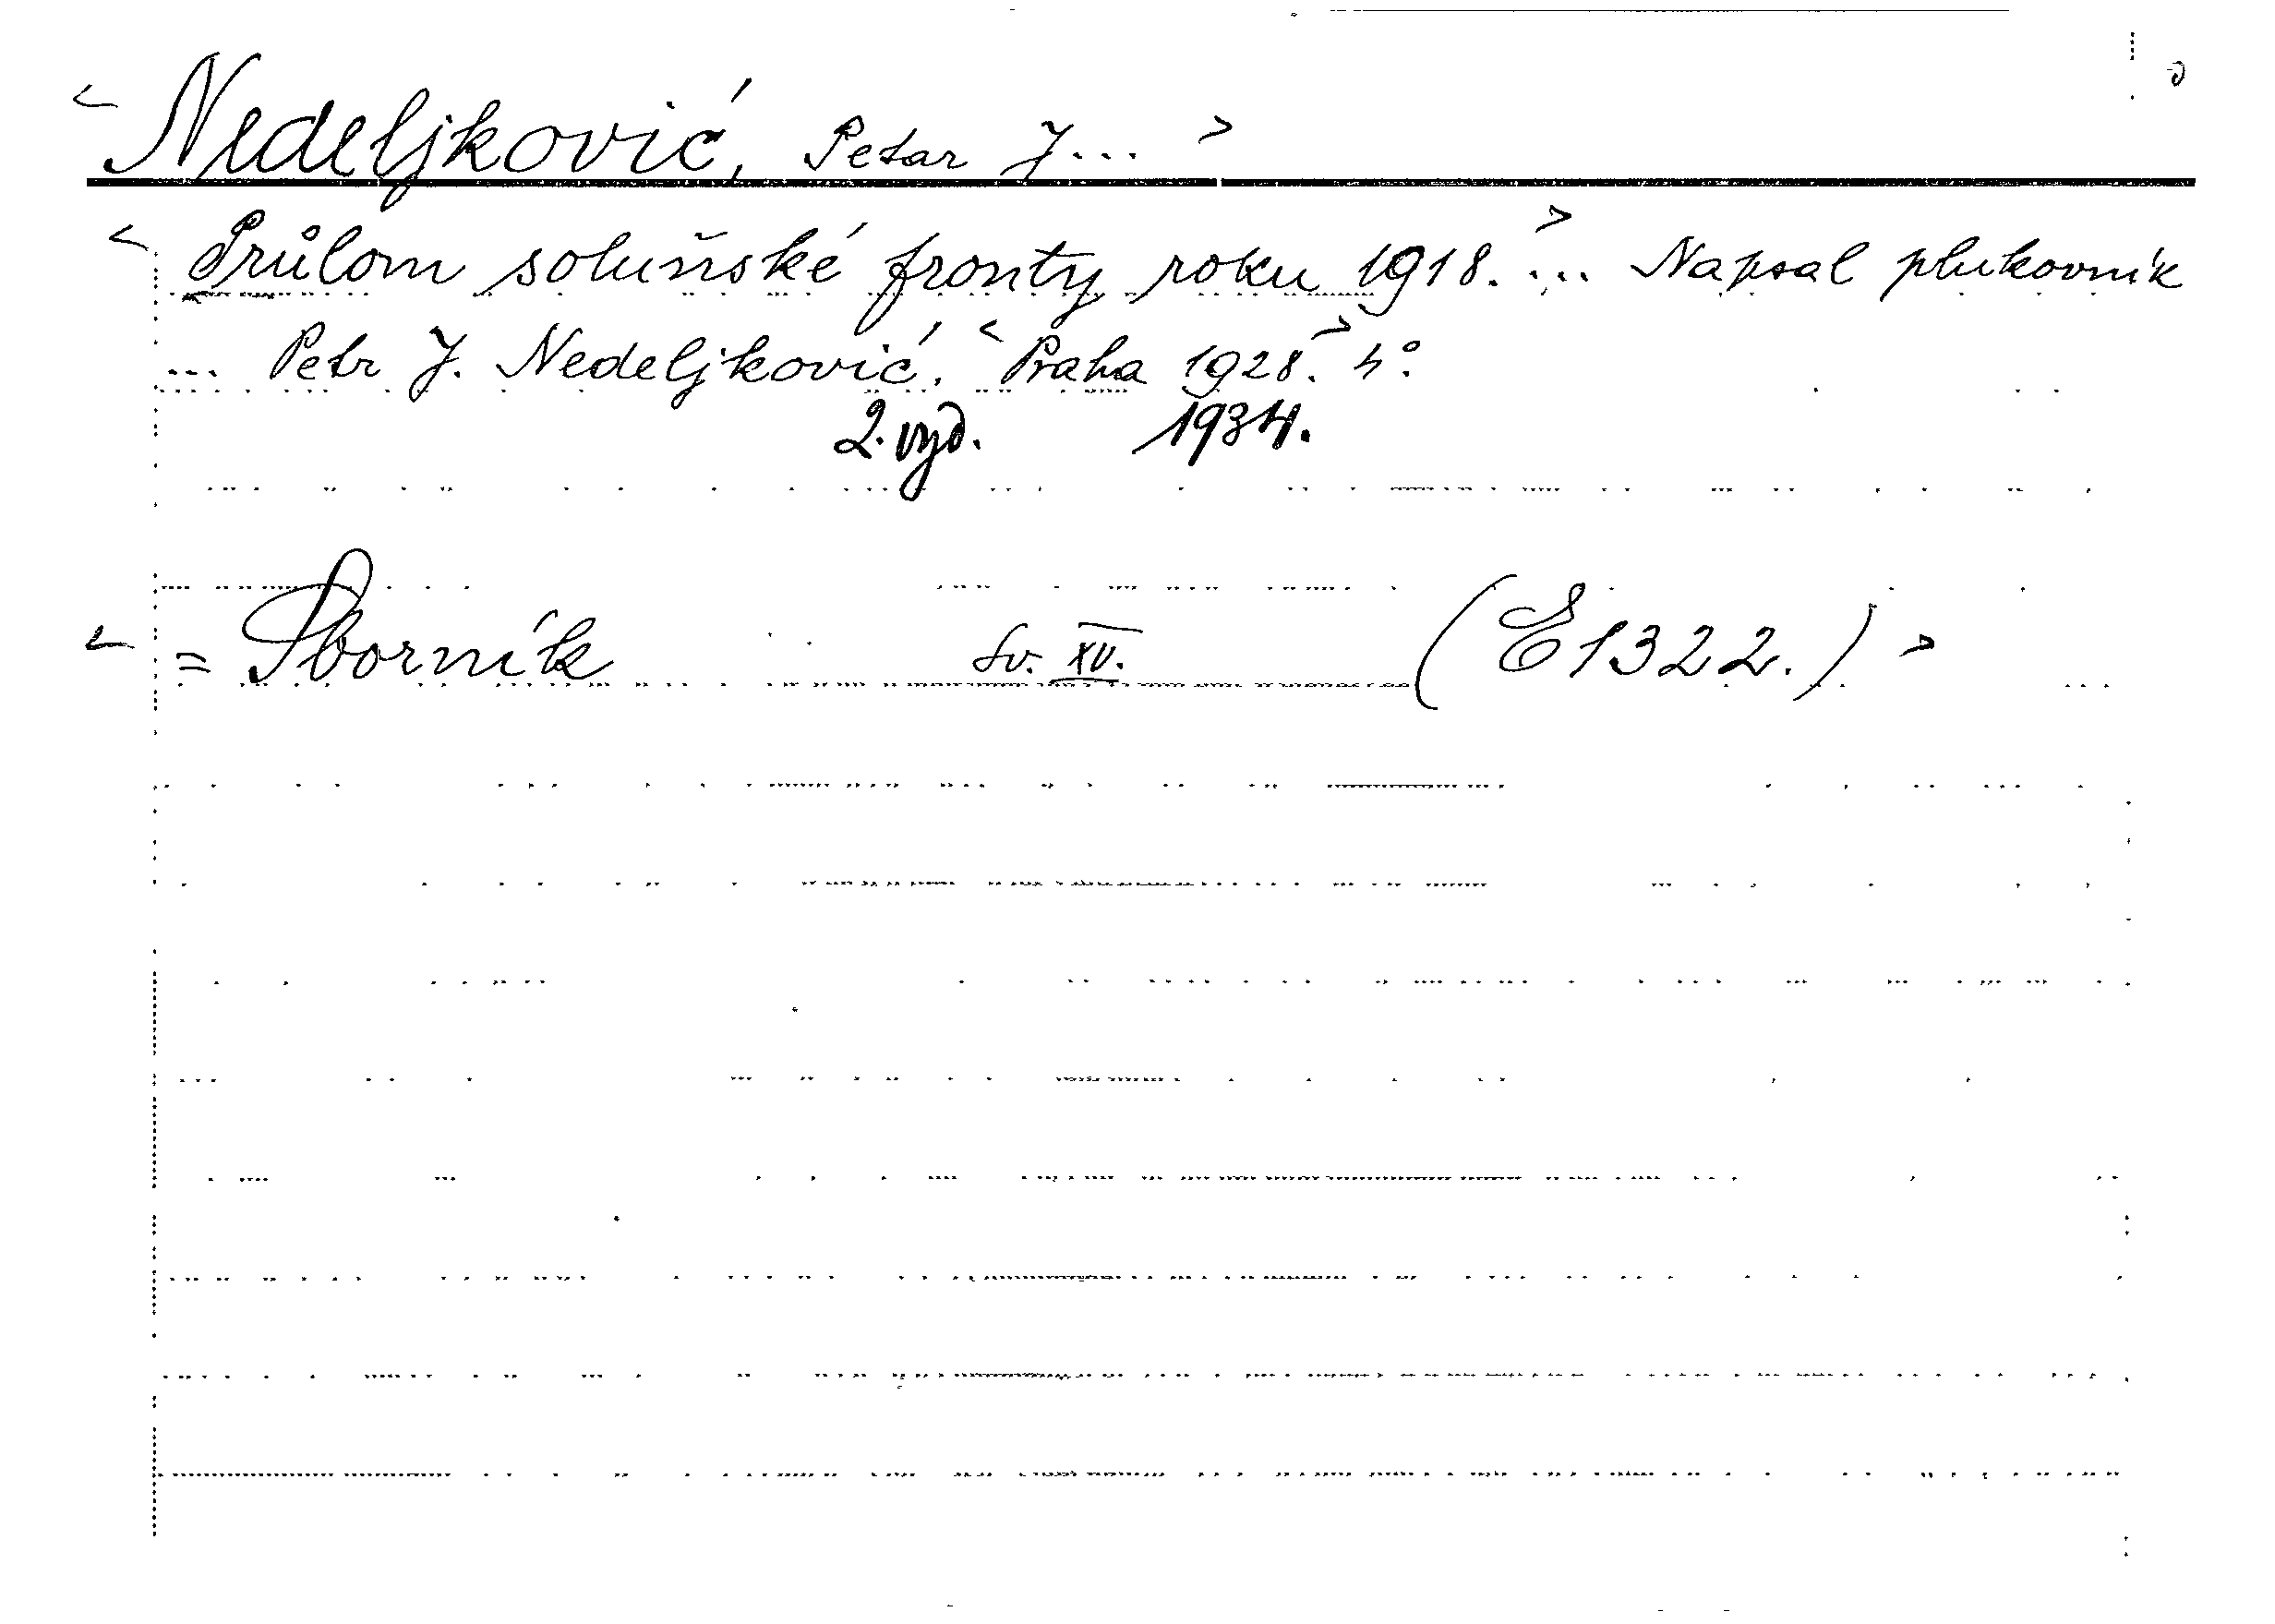 < Nedeljković, Petar J... >
< Průlom soluňské fronty roku 1918. > ... Napsal plukovník
... Petr J. Nedeljković. < Praha 1928. > 4°.
2. vyd. 1934.
< = Sborník Sv. XV. (E1322.) >